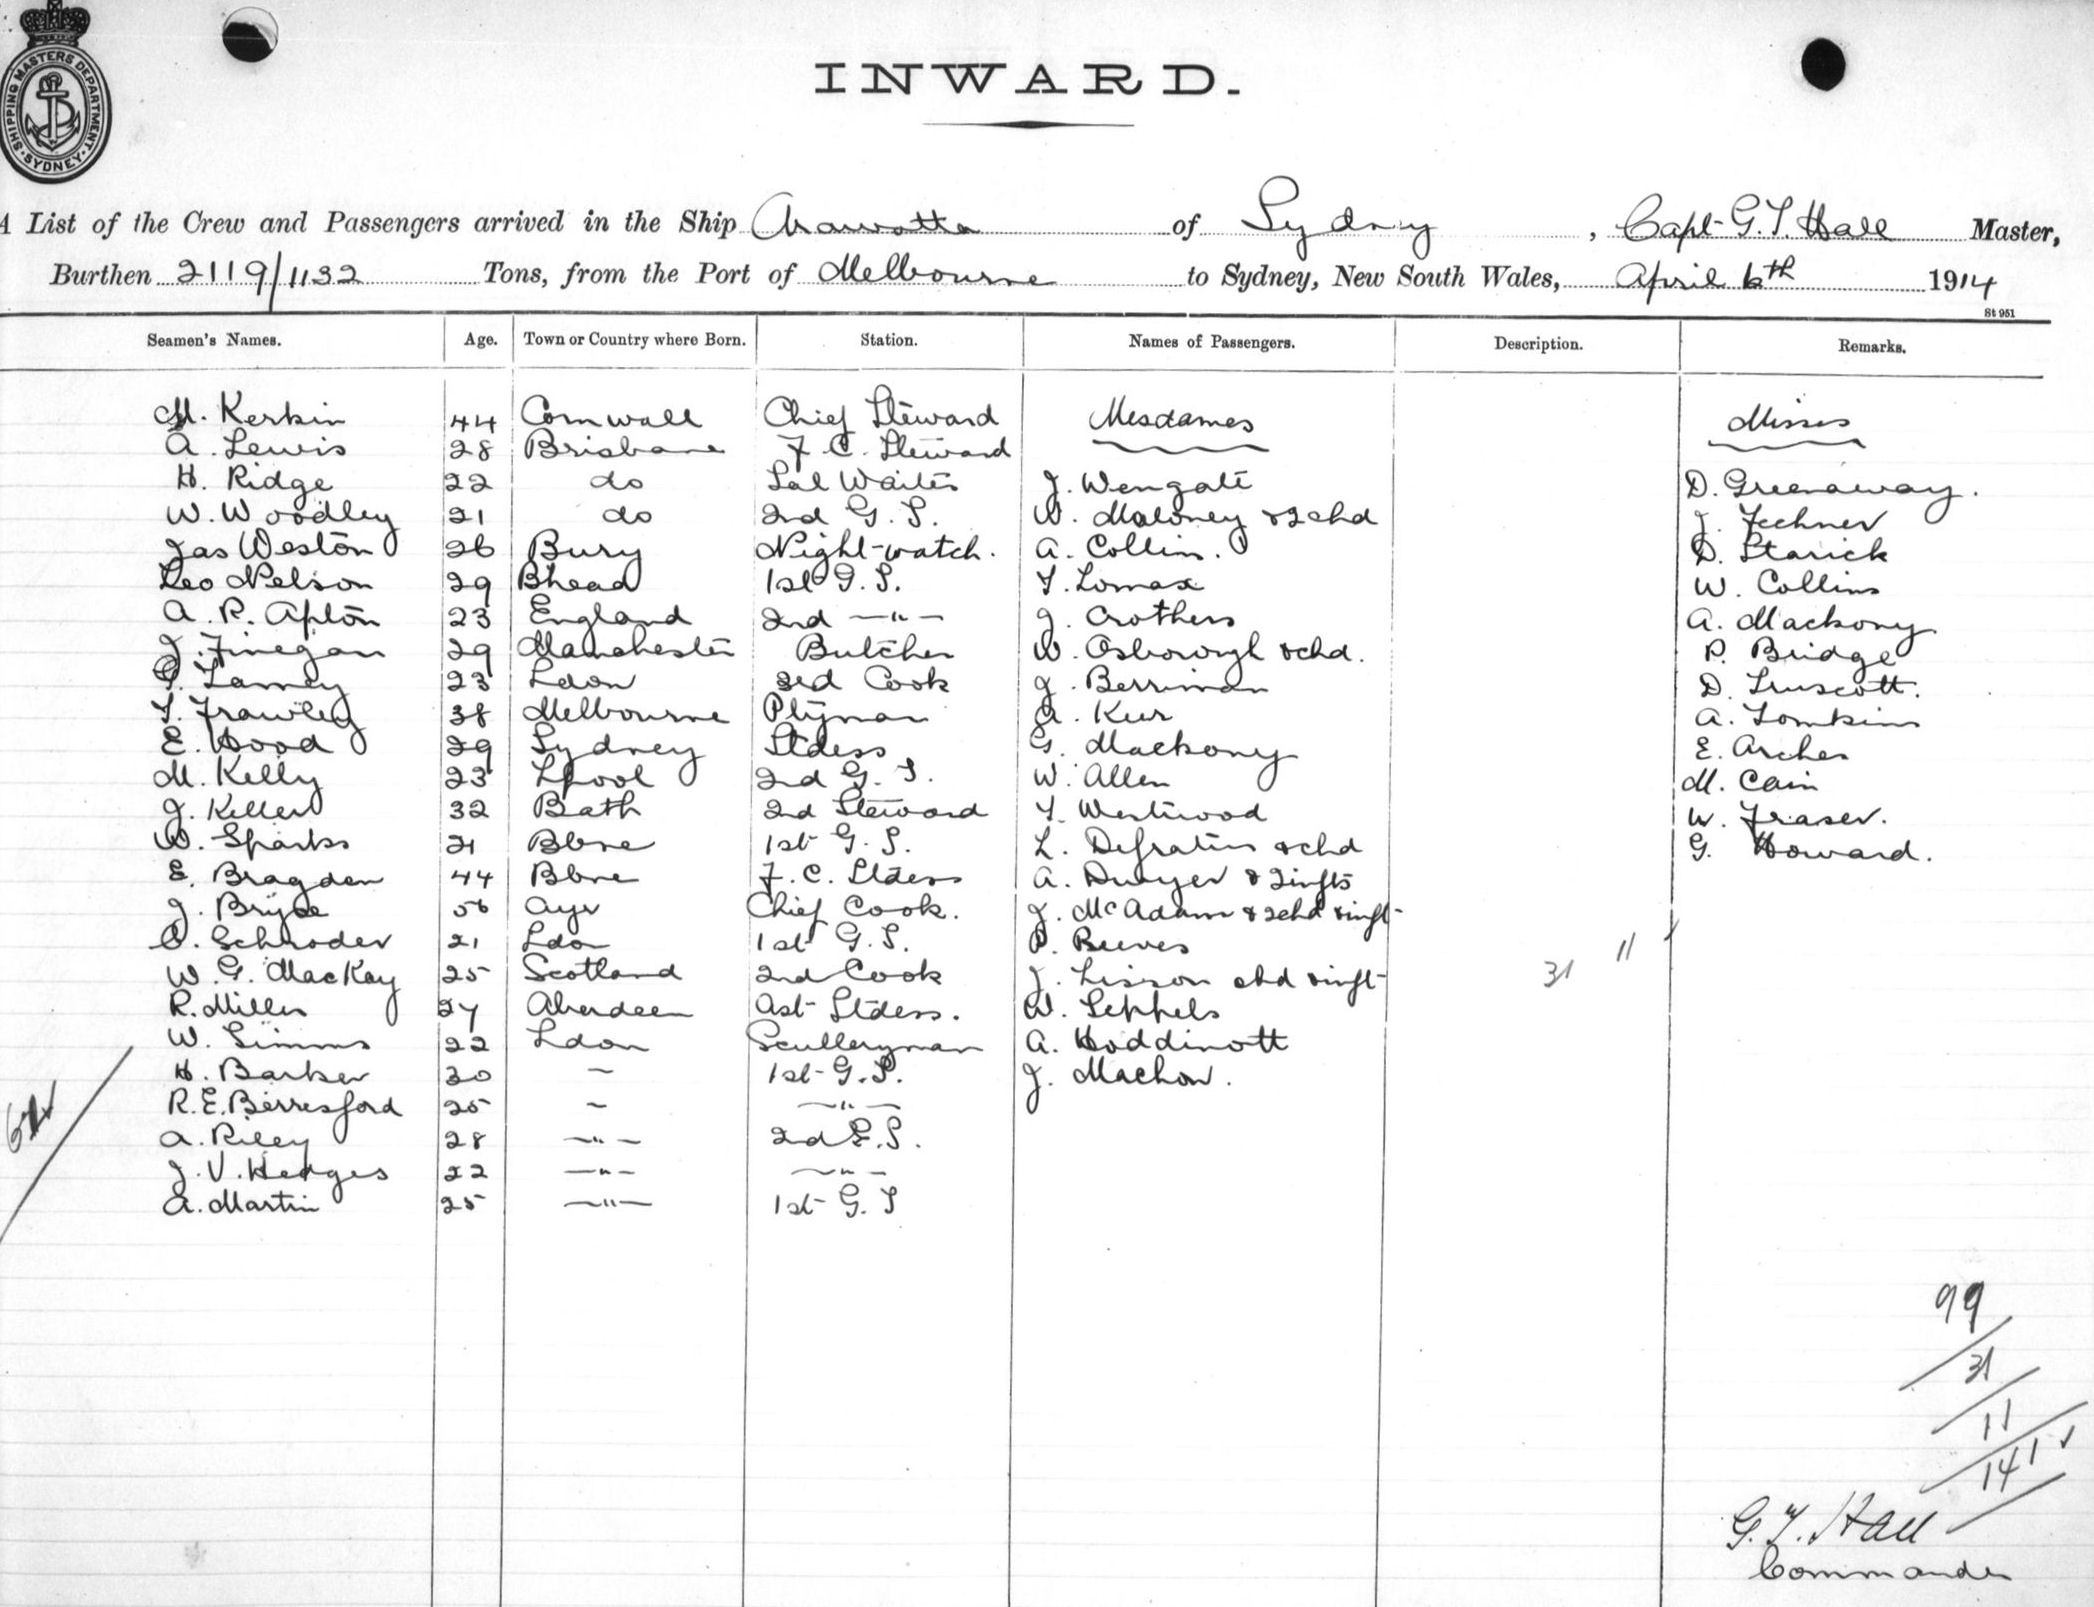 SHIPPING MASTERS DEPARTMENT SYDNEY
INWARD.
A List of the Crew and Passengers arrived in the Ship Arawatta of Sydney, Capt G.T. Hall Master,
Burthen 2119/1132 Tons, from the Port of Melbourne to Sydney, New South Wales, April 6th 1914
St 951
Seamen's Names. Age. Town or Country where Born. Station. Names of Passengers. Description. Remarks.
M. Kerkin 44 Cornwall Chief Steward Mesdames Misses
A. Lewis 28 Brisbane F. C. Steward
H. Ridge 22 do Sal Waiter J. Wengate D. Greenaway.
W. Woodley 21 do 2nd G. S. W. Maloney & 2 chd J. Fechner
Jas Weston 26 Bury Night-watch. A. Collin. D. Starick
Leo Nelson 29 Bhead 1st G. S. T. Lomax W. Collins
A. R. Apton 23 England 2nd —"— J. Crothers A. Mackony
J. Finegan 29 Manchester Butcher W. Osborough & chd. P. Bridge
Lamey 23 Ldon 3rd Cook J. Berriman D. Truscott.
T. Frawley 38 Melbourne Ptyman A. Keir A. Tomkins
E. Hood 29 Sydney Stdess G. Mackony E. Archer
M. Kelly 23 Lpool 2nd G. S. W. Allen M. Cain
J. Keller 32 Bath 2nd Steward T. Westwood W. Fraser.
W. Sparks 21 Bbne 1st G. S. L. Defratis & chd G. Howard.
E. Bragden 44 Bbne F. C. Stdess A. Dwyer & 2 infts
J. Bryce 56 Ayr Chief Cook. J. McAdam & 2 chd & inft
Schroder 21 Ldon 1st G. S. P. Beeves
W. G. MacKay 25 Scotland 2nd Cook J. Lisson chd & inft 31 11
R. Miller 27 Aberdeen Ast Stdess. W. Seppels
W. Simms 22 Ldon Sculleryman A. Hoddinott
H. Barker 30 – 1st G. S. J. Machon.
R. E. Berresford 25 – —"—
A. Riley 28 —"— 2nd G. S.
J. V. Hedges 22 —"— —"—
A. Martin 25 —"— 1st G. S
99
31
11
141
G. T. Hall
Commander